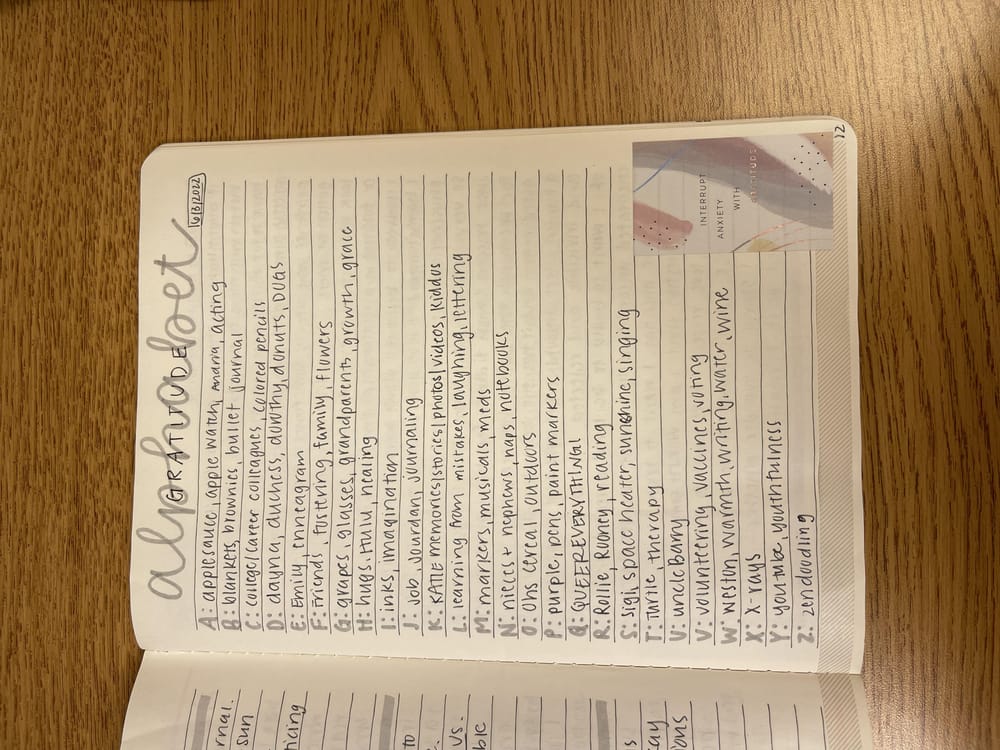 alphabet
GRATITUDE
6/3/2022
A: applesauce, apple watch, Maria, acting
B: blankets, brownies, bullet journal
C: college/career colleagues, colored pencils
D: dayna, duchess, dorothy, donuts, DUGS
E: Emily, enneagram
F: Friends, fostering, family, flowers
G: grapes, glasses, grandparents, growth, grace
H: hugs, Hulu, healing
I: inks, imagination
J: Job, Jordan, journaling
K: KATIE memories/stories/photos/videos, kiddus
L: learning from mistakes, laughing, lettering
M: markers, musicals, meds
N: nieces + nephews, naps, notebooks
O: Ohs cereal, outdoors
P: purple, pens, paint markers
Q: QUEER EVERYTHING!
R: Rollie, Rooney, reading
S: Sigi, space heater, sunshine, singing
T: Turtle, therapy
U: uncle Barry
V: volunteering, vaccines, voting
W: Weston, warmth, writing, water, wine
X: X-rays
Y: youtube, youthfulness
Z: zendoodling
INTERRUPT
ANXIETY
WITH
GRATITUDE
12
rnal.
sun
ticing
to
us.
ble
s
tay
ions